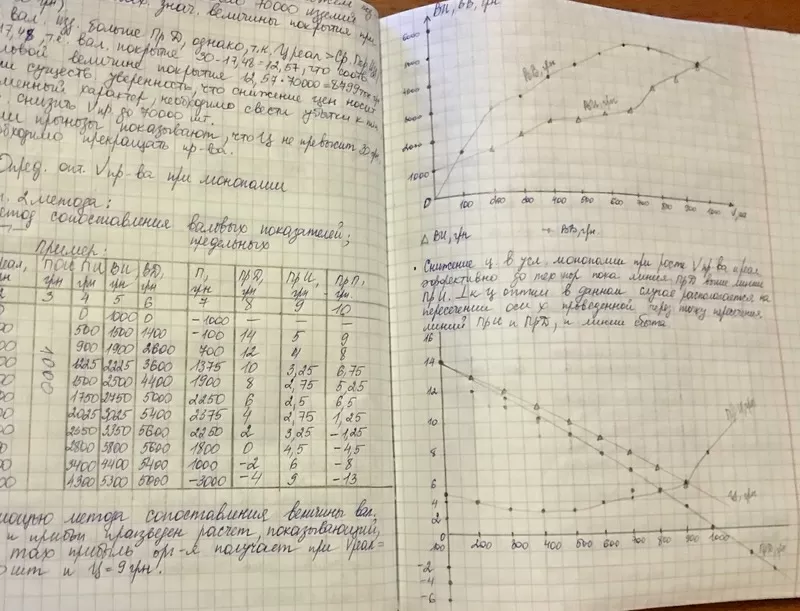 70000 изделий
знач. величины покрытия при
вал. изд. больше ПрД, однако, т.к. Ц реал > Ср. Пер. И
17,48, т.е. вал. покрытие 30-17,48=12,57, что соотв.
величине покрытия 12,57·70000=879900
существ. уверенность, что снижение цен носит
характер, необходимо свести убытки к
снизить Vпр до 70000 шт.
прогнозы показывают, что Ц не превысит 30 грн,
необходимо прекращать пр-ва.
Опред. опт. Vпр-ва при монополии
2 метода:
метод сопоставления валовых показателей;
предельных
Пример:
реал, ПОИ ПИ ВИ ВД, П, ПрД, ПрИ, ПрП,
грн грн грн грн грн грн грн грн
2 3 4 5 6 7 8 9 10
1000
0 1000 0 -1000 – – –
500 1500 1400 -100 14 5 9
900 1900 2600 700 12 4 8
1225 2225 3600 1375 10 3,25 6,75
1500 2500 4400 1900 8 2,75 5,25
1750 2750 5000 2250 6 2,5 6,5
2025 3025 5400 2375 4 2,75 1,25
2350 3350 5600 2250 2 3,25 -1,25
2800 3800 5600 1800 0 4,5 -4,5
3400 4400 5400 1000 -2 6 -8
4300 5300 5000 -3000 -4 9 -13
помощью метода сопоставления величины вал.
и прибыли произведен расчет, показывающий,
max прибыль орг-я получает при Vреал=
шт и Ц=9 грн.
ВИ, ВВ, грн
6000
5000
4000
3000
2000
1000
0
ВВ, грн
ВИ, грн
100 200 300 400 500 600 700 800 900 1000 V, шт
△ ВИ, грн
ВВ, грн.
Снижение ц. в усл. монополии при росте Vпр-ва и реал.
эффективно до тех пор пока линия ПрД выше линии
ПрИ. ⊥ к Ц оптим в данном случае располагается на
пересечении оси x проведенной через точку пересечения
линий ПрИ и ПрД, и линии сбыта.
16
14
12
10
8
6
4
2
0
-2
-4
-6
100 200 300 400 500 600 700 800 900 1000
ПрИ, грн
Ц, грн
ПрД, грн